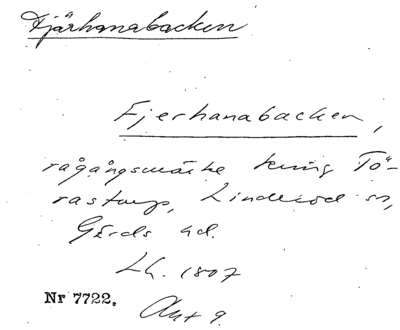 Fjärhanabacken
Fjerhanabacken,
rågångsmärke kring Tö-
rastorp, Linderöd sn,
Gärds hd.
Lh. 1807
Nr 7722. Akt 9.